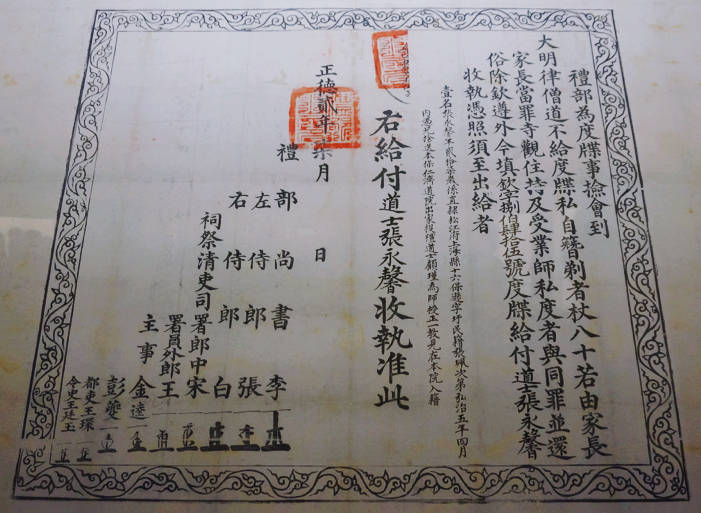 禮部為度牒事撿會到
大明律僧道不給度牒私自簪剃者杖八十若由家長
家長當罪寺觀住持及受業師私度者與同罪並還
俗除欽遵外今填欽字捌伯肆拾伍號度牒給付道士張永馨
收執憑照須至出給者
壹名張永馨年貳拾柒歲係直隸松江府上海縣十六保 字圩民籍張珮次弟弘治五年四月
内 送本保仁濟道院出家投禮道士顧瑾為師授正一教見在本院入籍
右給付道士張永馨收執准此
正德貳年柒月 日
禮
部尚書李
左侍郎張
右侍郎白
祠祭清吏司署郎中宋
署員外郎王
主事金逵
彭夔
都吏王環
令史王廷玉